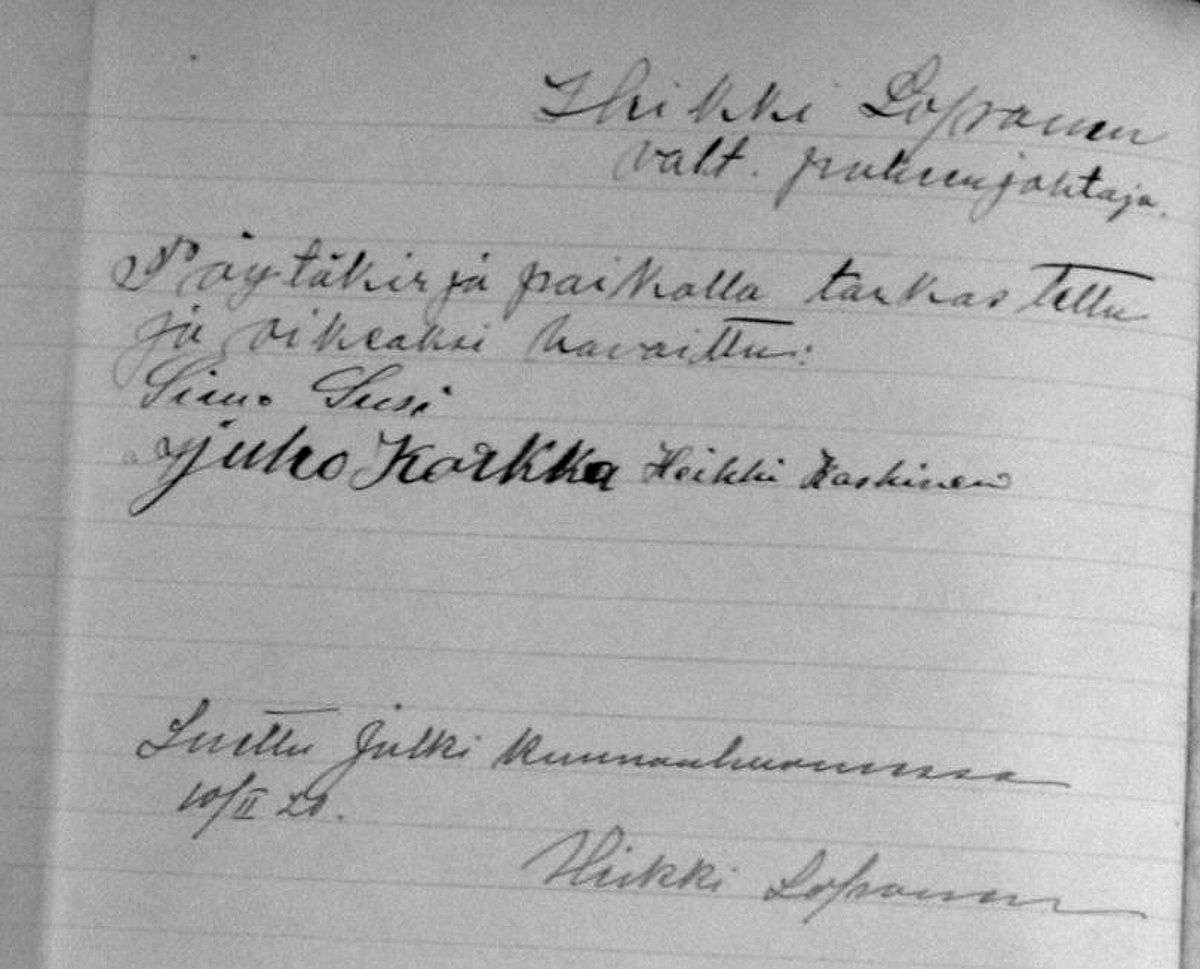 Heikki Loponen
valt. puheenjohtaja.
Pöytäkirja paikalla tarkastettu
ja oikeaksi havaittu:
Simo Susi
Juho Korkka Heikki Kaskinen
Luettu julki kunnanhuoneessa
10/II 20.
Heikki Loponen